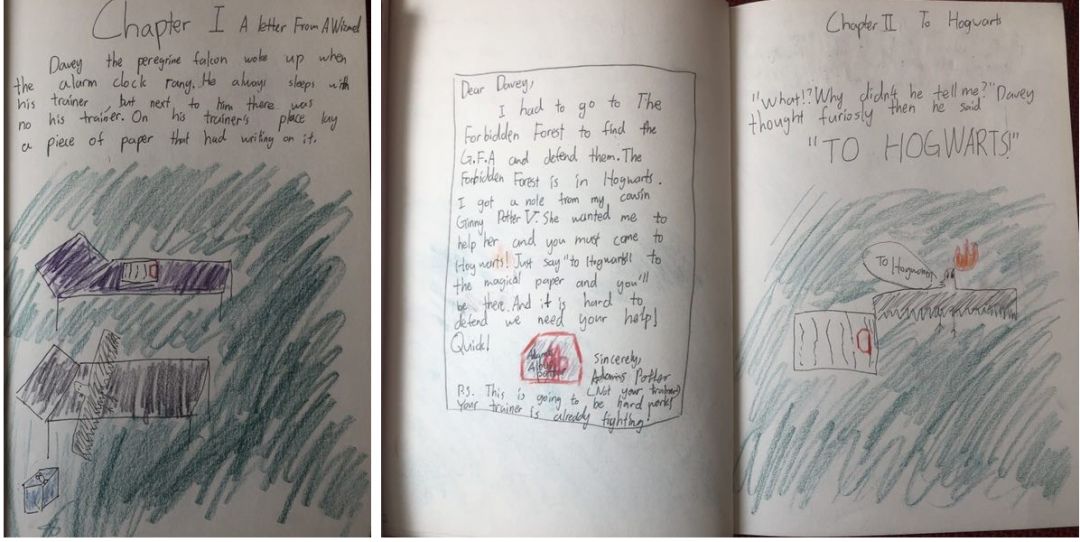 Chapter I A letter From A Wizard
Davey the peregrine falcon woke up when
the alarm clock rang. He always sleeps with
his trainer, but next to him there was
no his trainer. On his trainer's place lay
a piece of paper that had writing on it.
Dear Davey,
I had to go to The
Forbidden Forest to find the
G.F.A and defend them. The
Forbidden Forest is in Hogwarts.
I got a note from my cousin
Ginny Potter V. She wanted me to
help her and you must come to
Hogwarts! Just say "to Hogwarts!" to
the magical paper and you'll
be there. And it is hard to
defend we need your help!
Quick!
Sincerely,
Potter
(Not your trainer)
P.S. This is going to be hard work!
Your trainer is already fighting!
Chapter II To Hogwarts
"What!? Why didn't he tell me?" Davey
thought furiosly then he said
"TO HOGWARTS!"
To Hogwarts!